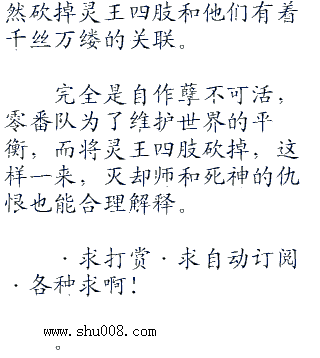 然砍掉灵王四肢和他们有着
千丝万缕的关联。
完全是自作孽不可活，
零番队为了维护世界的平
衡，而将灵王四肢砍掉，这
样一来，灭却师和死神的仇
恨也能合理解释。
·求打赏·求自动订阅
·各种求啊！
www.shu008.com
。